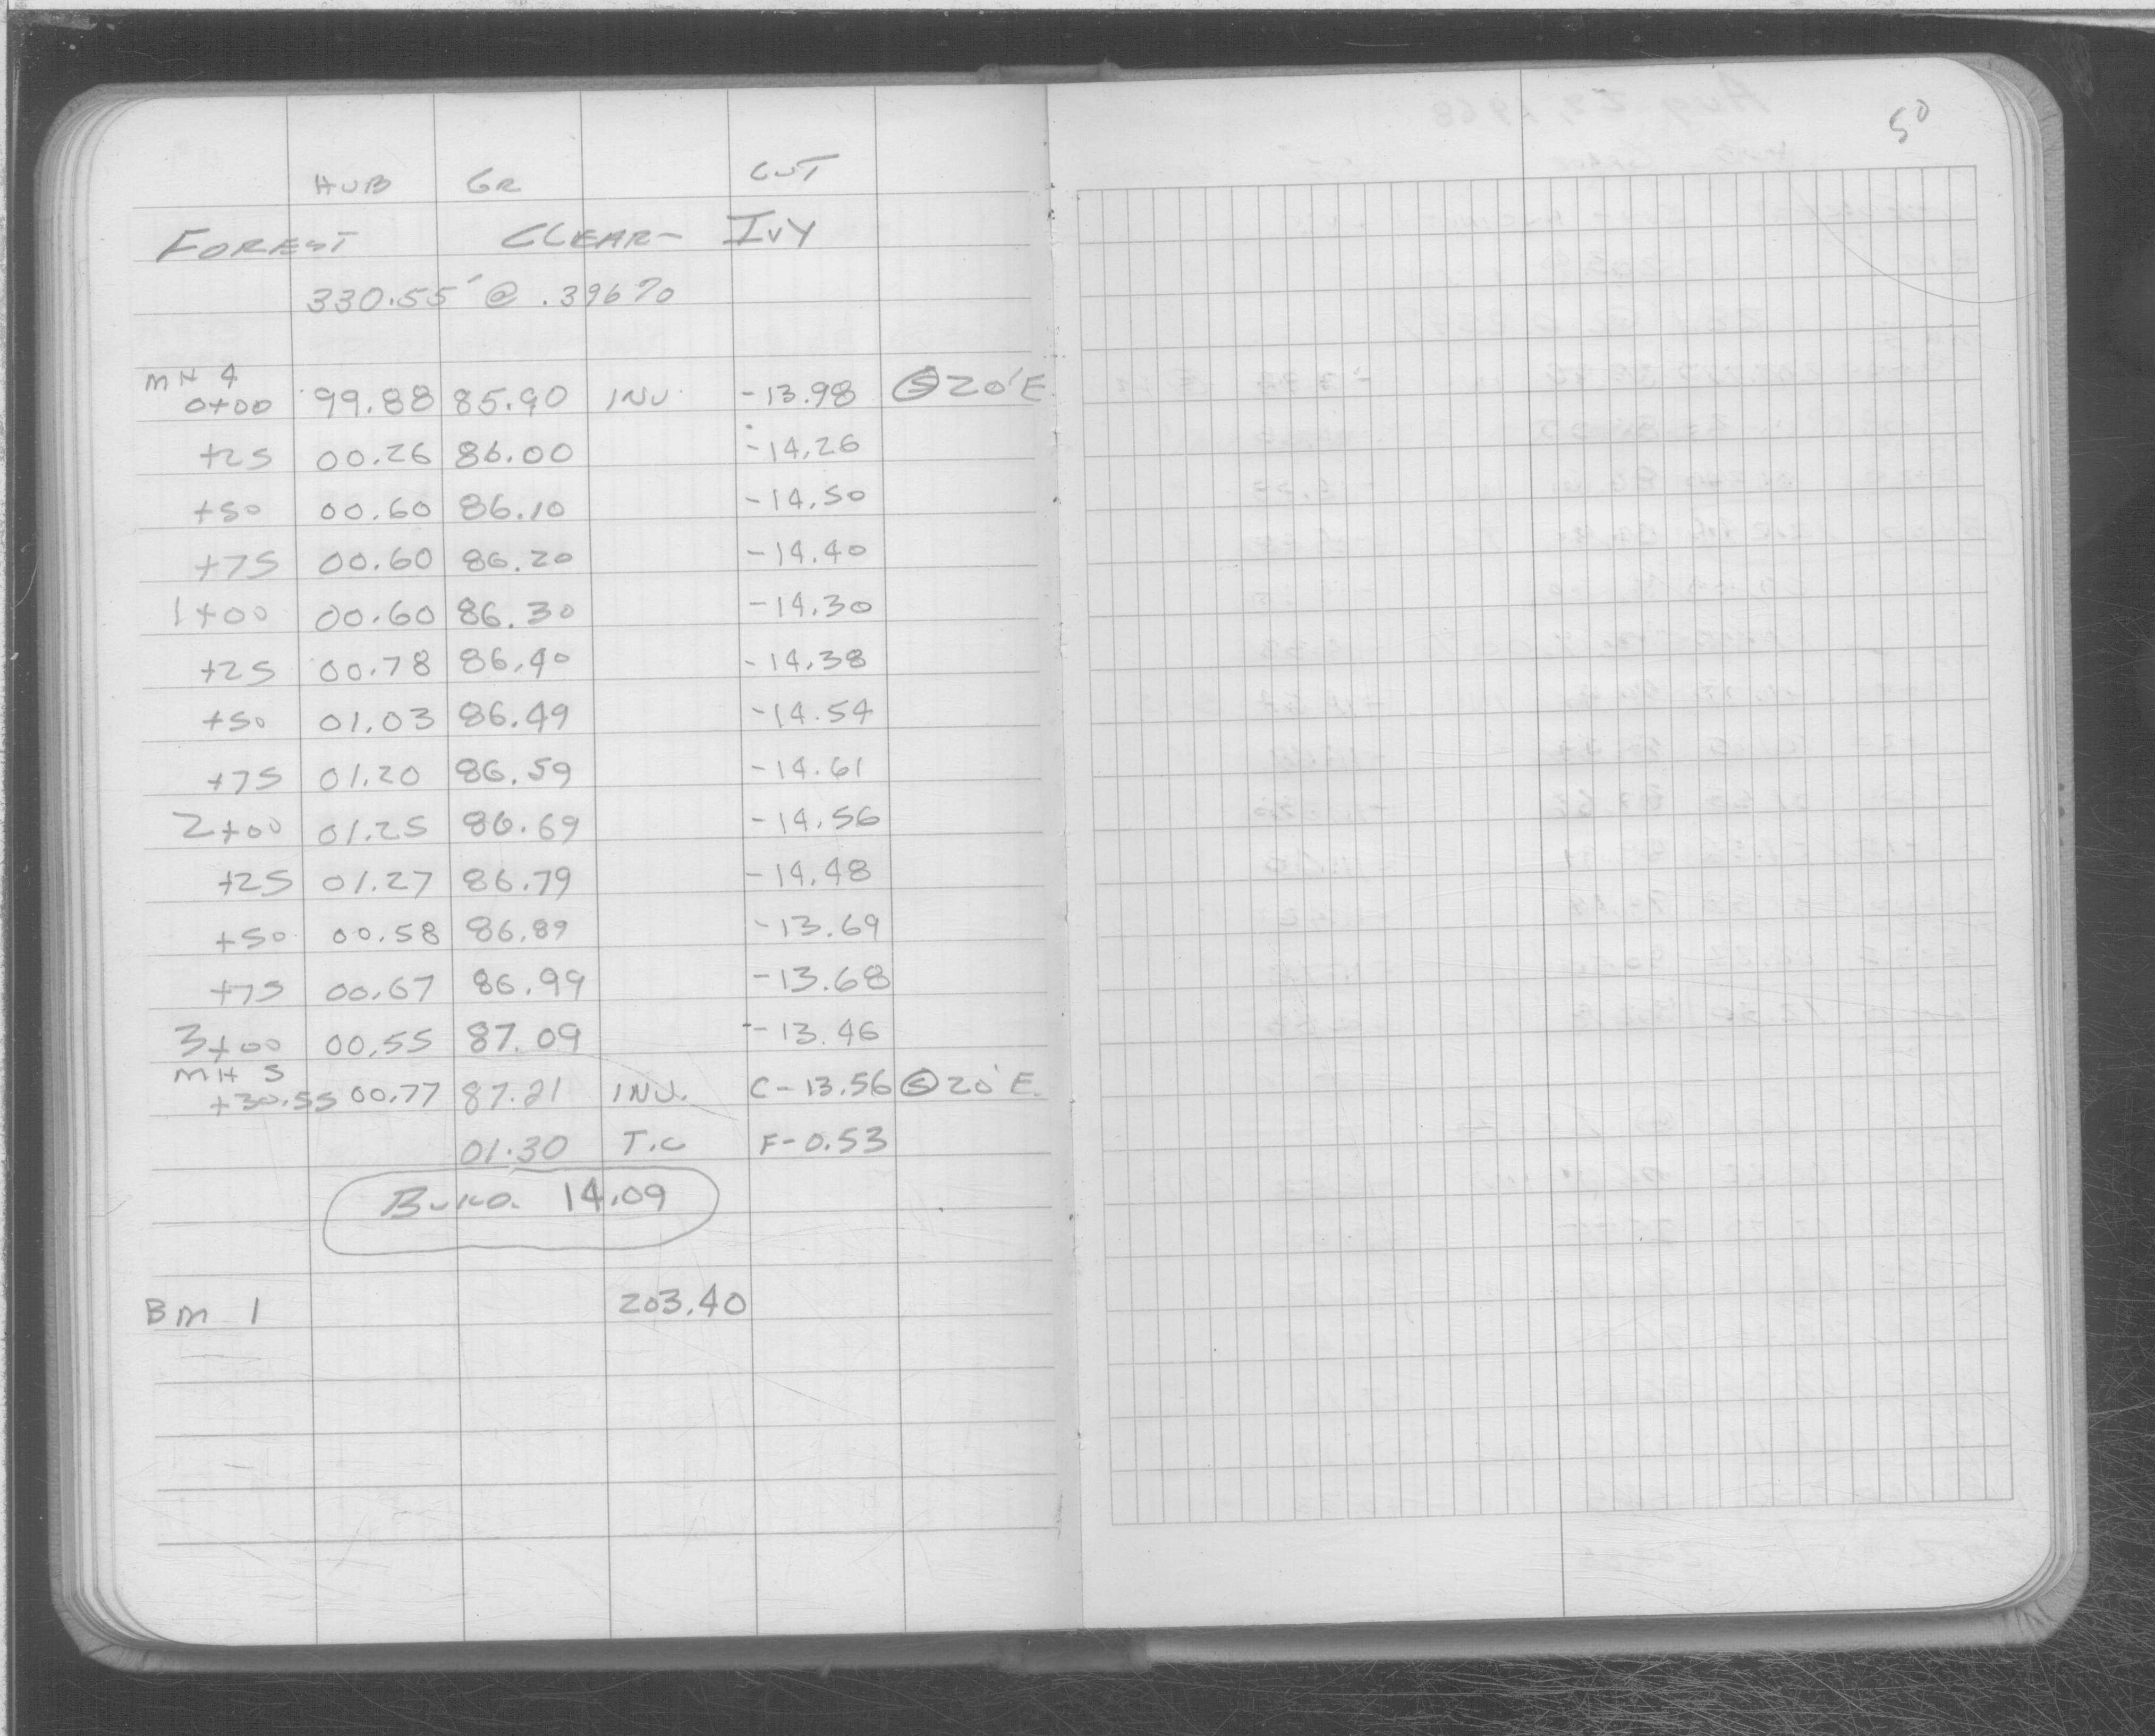 50
HUB GR CUT
FOREST CLEAR - IVY
330.55' @ .396%
MH 4
0+00 99.88 85.90 INV. -13.98 Ⓢ 20' E.
+25 00.26 86.00 -14.26
+50 00.60 86.10 -14.50
+75 00.60 86.20 -14.40
1+00 00.60 86.30 -14.30
+25 00.78 86.40 -14.38
+50 01.03 86.49 -14.54
+75 01.20 86.59 -14.61
2+00 01.25 86.69 -14.56
+25 01.27 86.79 -14.48
+50 00.58 86.89 -13.69
+75 00.67 86.99 -13.68
3+00 00.55 87.09 -13.46
MH 5
+30.55 00.77 87.21 INV. C-13.56 Ⓢ 20' E.
01.30 T.C F-0.53
14.09
BM 1 203.40